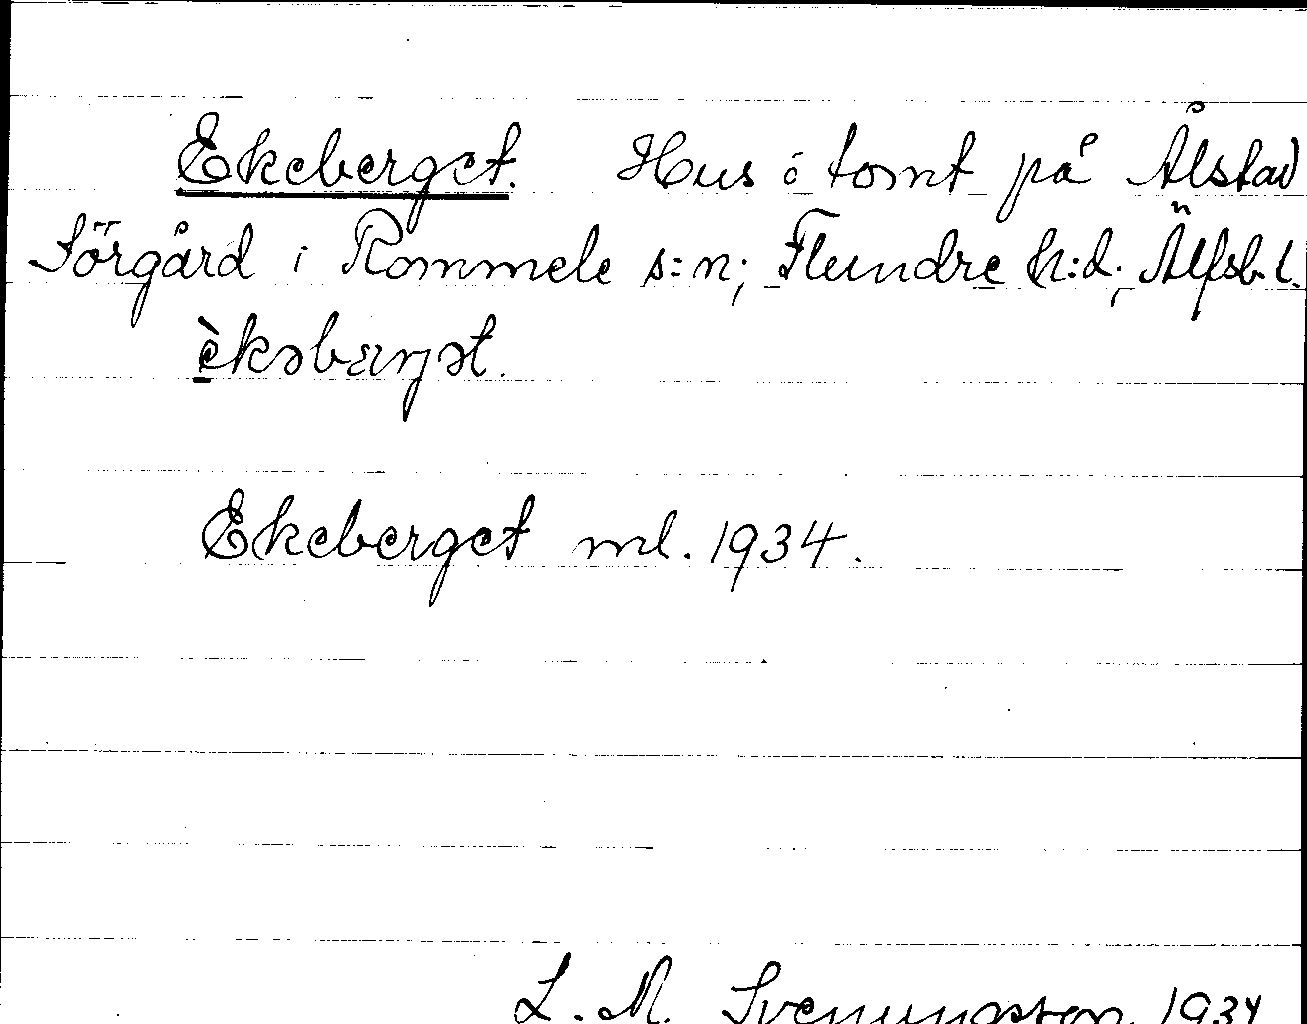 Ekeberget. Hus ó tomt på Ålstad
Sörgård i Rommele s:n; Flundre h:d; Älfsb. l.
èkəbærjət.
Ekeberget ml. 1934.
L. M. Svenungsson 1934